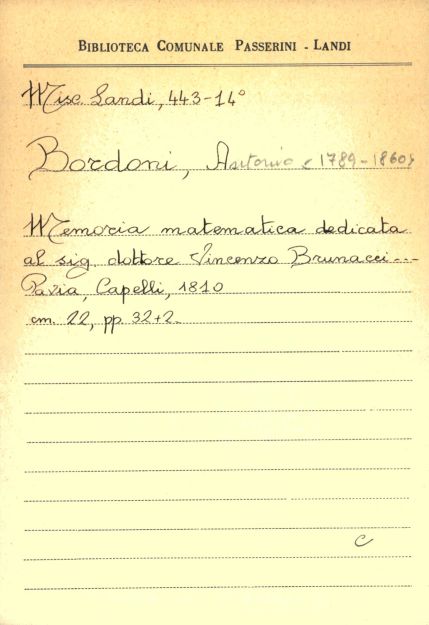 BIBLIOTECA COMUNALE PASSERINI - LANDI
Misc. Landi, 443-14°
Bordoni, Antonio <1789-1860>
Memoria matematica dedicata
al sig. dottore Vincenzo Brunacci...
Pavia, Capelli, 1810
cm. 22, pp. 32+2.
C